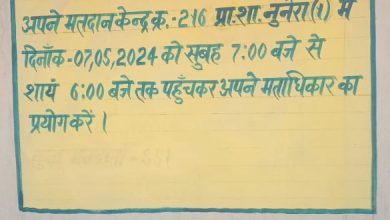 अपने मतदान केन्द्र क्र.-216 प्रा.शा. नुनेरा (1) में
दिनाँक-07,05,2024 को सुबह 7:00 बजे से
शायं 6:00 बजे तक पहुँचकर अपने मताधिकार का
प्रयोग करें।